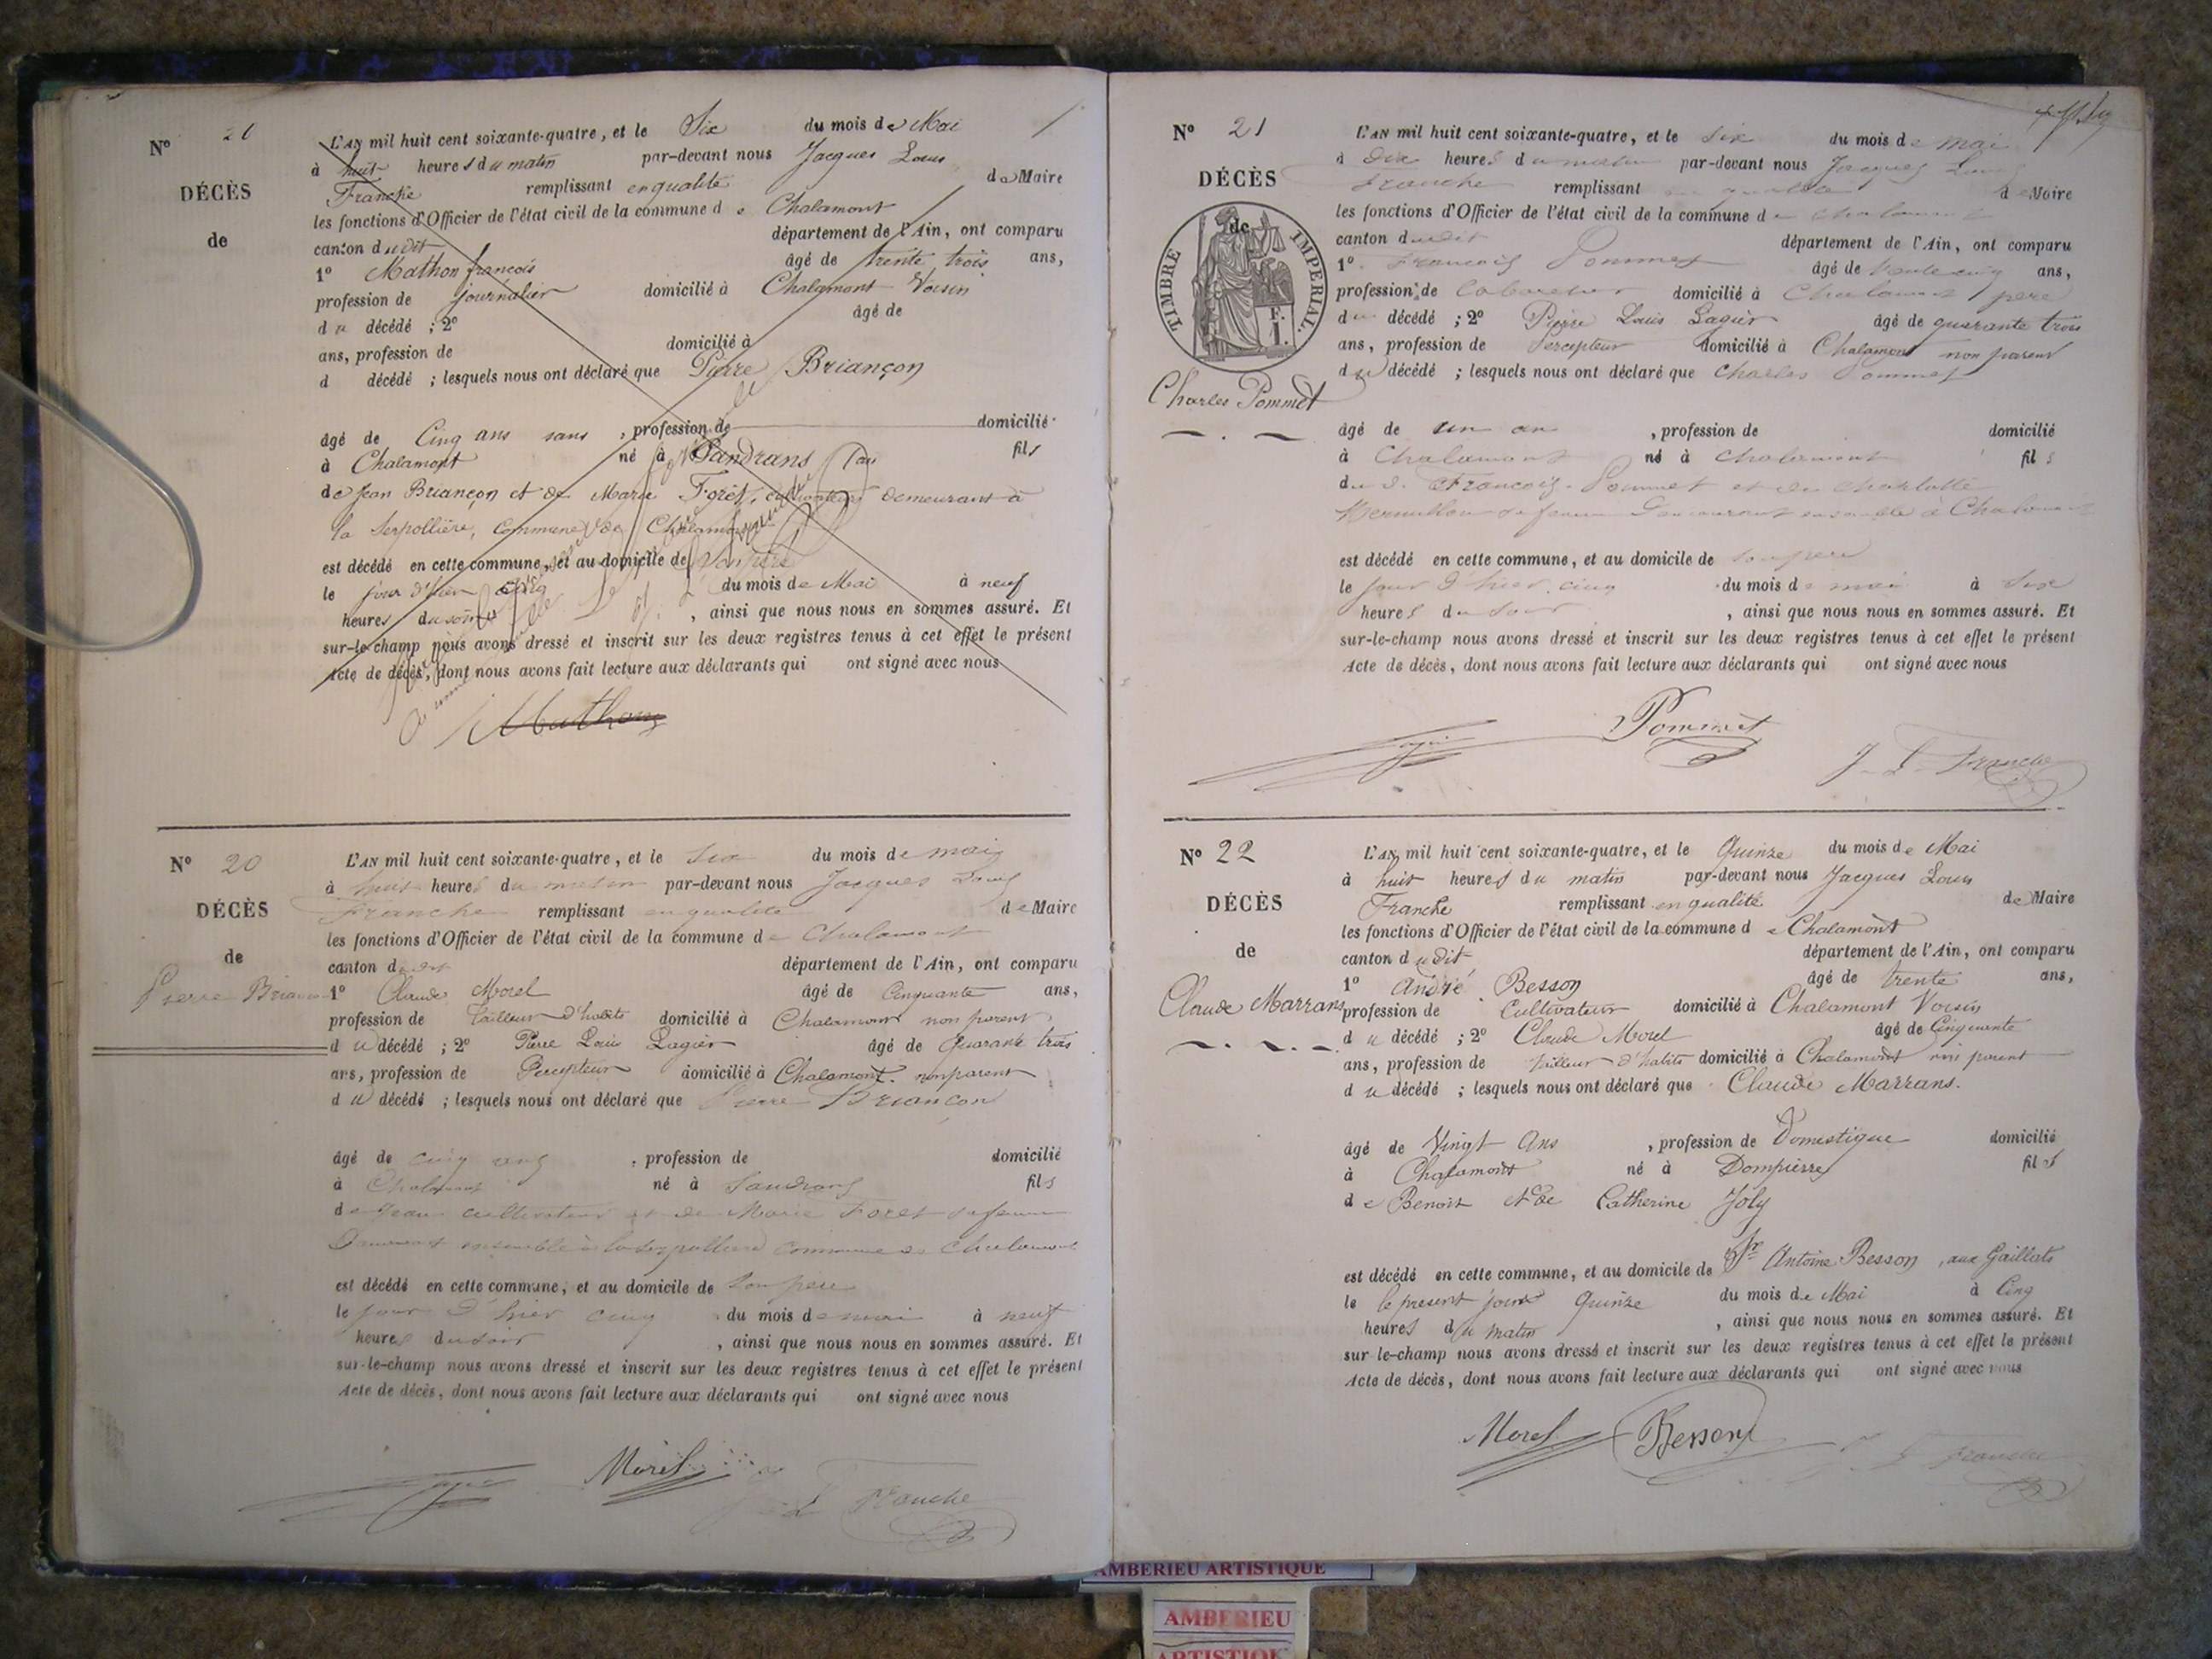 N° 20
DÉCÈS
de
L'AN mil huit cent soixante-quatre, et le Six du mois de Mai
à huit heures du matin par-devant nous Jacques Louis
Franche remplissant en qualité de Maire
les fonctions d'Officier de l'état civil de la commune de Chalamont
canton dudit département de l'Ain, ont comparu
1° Mathon françois âgé de trente trois ans,
profession de journalier domicilié à Chalamont Voisin
du décédé ; 2° âgé de
ans, profession de domicilié à
d décédé ; lesquels nous ont déclaré que Pierre Briançon
âgé de Cinq ans sans , profession de domicilié
à Chalamont né à Sandrans fils
de Jean Briançon et de Marie Forêt, cultivateurs demeurant à
la Serpollière, Commune de Chalamont
est décédé en cette commune, et au domicile de Son père
le jour d'hier cinq du mois de Mai à neuf
heures du soir , ainsi que nous nous en sommes assuré. Et
sur-le-champ nous avons dressé et inscrit sur les deux registres tenus à cet effet le présent
Acte de décès, dont nous avons fait lecture aux déclarants qui ont signé avec nous
Mathon
N° 20
DÉCÈS
de
Pierre
L'AN mil huit cent soixante-quatre, et le six du mois de mai
à huit heures du matin par-devant nous Jacques Louis
Franche remplissant en qualité de Maire
les fonctions d'Officier de l'état civil de la commune de Chalamont
canton dudit département de l'Ain, ont comparu
1° Claude Morel âgé de Cinquante ans,
profession de tailleur d'habits domicilié à Chalamont non parent
du décédé ; 2° Pierre Louis Lagier âgé de Quarante trois
ans, profession de Percepteur domicilié à Chalamont non parent
du décédé ; lesquels nous ont déclaré que Pierre Briançon
âgé de cinq ans , profession de domicilié
à Chalamont né à Sandrans fils
de Jean cultivateur et de Marie Foret sa femme
Demeurant ensemble à la Serpolliere commune de Chalamont
est décédé en cette commune, et au domicile de son père
le jour d'hier cinq du mois de mai à neuf
heures du soir , ainsi que nous nous en sommes assuré. Et
sur-le-champ nous avons dressé et inscrit sur les deux registres tenus à cet effet le présent
Acte de décès, dont nous avons fait lecture aux déclarants qui ont signé avec nous
Morel
J L Franche
N° 21
DÉCÈS
de
TIMBRE IMPERIAL.
Charles Pommet
L'AN mil huit cent soixante-quatre, et le six du mois de mai
à dix heures du matin par-devant nous Jacques Louis
Franche remplissant en qualité de Maire
les fonctions d'Officier de l'état civil de la commune de Chalamont
canton dudit département de l'Ain, ont comparu
1° François Pommet âgé de ans,
profession de Cabaretier domicilié à Chalamont père
du décédé ; 2° Pierre Louis Lagier âgé de quarante trois
ans, profession de Percepteur domicilié à Chalamont non parent
du décédé ; lesquels nous ont déclaré que Charles Pommet
âgé de un an , profession de domicilié
à Chalamont né à Chalamont fils
du d. François Pommet et de Charlotte
sa femme Demeurant ensemble à Chalamont
est décédé en cette commune, et au domicile de son père
le jour d'hier cinq du mois de mai à six
heures du soir , ainsi que nous nous en sommes assuré. Et
sur-le-champ nous avons dressé et inscrit sur les deux registres tenus à cet effet le présent
Acte de décès, dont nous avons fait lecture aux déclarants qui ont signé avec nous
Pommet
J. L. Franche
N° 22
DÉCÈS
de
Claude Marrans
L'AN mil huit cent soixante-quatre, et le Quinze du mois de Mai
à huit heures du matin par-devant nous Jacques Louis
Franche remplissant en qualité de Maire
les fonctions d'Officier de l'état civil de la commune de Chalamont
canton dudit département de l'Ain, ont comparu
1° André Besson âgé de trente ans,
profession de Cultivateur domicilié à Chalamont Voisin
du décédé ; 2° Claude Morel âgé de Cinquante
ans, profession de tailleur d'habits domicilié à Chalamont non parent
du décédé ; lesquels nous ont déclaré que Claude Marrans.
âgé de Vingt ans , profession de Domestique domicilié
à Chalamont né à Dompierre fils
de Benoit et de Catherine Joly
est décédé en cette commune, et au domicile de Sr Antoine Besson, aux Gaillats
le le présent jour Quinze du mois de Mai à Cinq
heures du matin , ainsi que nous nous en sommes assuré. Et
sur le-champ nous avons dressé et inscrit sur les deux registres tenus à cet effet le présent
Acte de décès, dont nous avons fait lecture aux déclarants qui ont signé avec nous
Morel Besson
J L Franche
AMBERIEU ARTISTIQUE
AMBERIEU
ARTISTIQUE